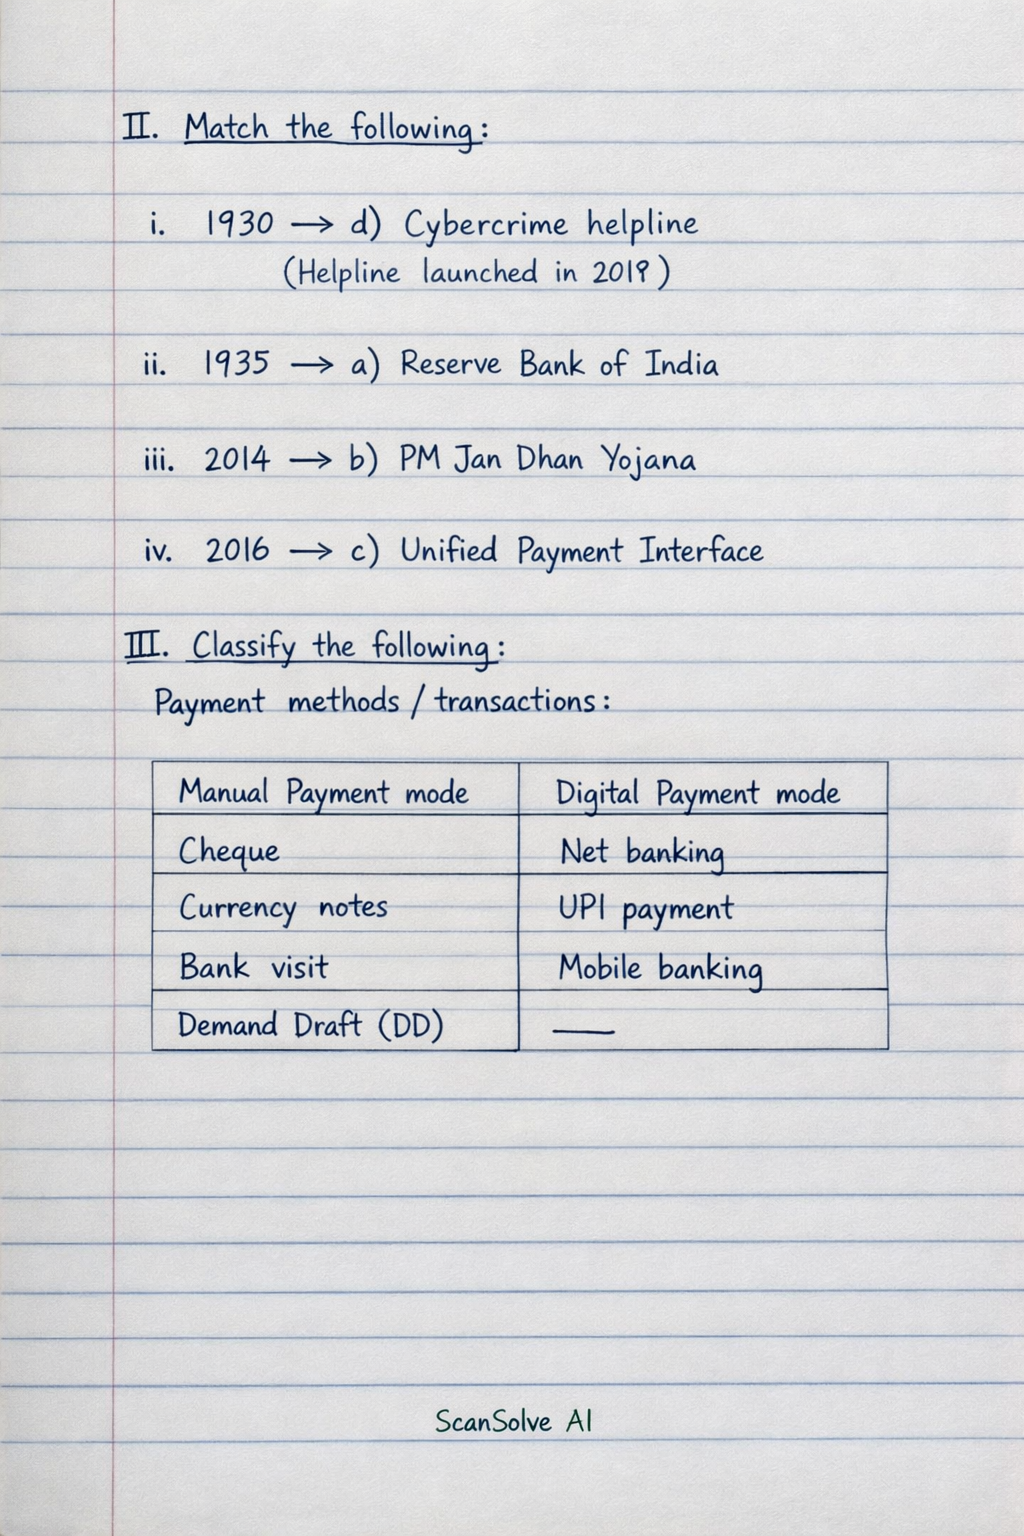 II. Match the following:
i. 1930 → d) Cybercrime helpline
(Helpline launched in 2019)
ii. 1935 → a) Reserve Bank of India
iii. 2014 → b) PM Jan Dhan Yojana
iv. 2016 → c) Unified Payment Interface
III. Classify the following:
Payment methods / transactions:
Manual Payment mode Digital Payment mode
Cheque Net banking
Currency notes UPI payment
Bank visit Mobile banking
Demand Draft (DD) —
ScanSolve AI